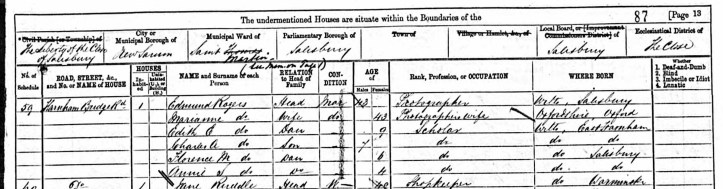 The undermentioned Houses are situate within the Boundaries of the 87 [Page 13
Civil Parish [or Township] of
The Liberty of the Close of Salisbury
City or Municipal Borough of
New Sarum
Municipal Ward of
Saint Thomas Martin
Parliamentary Borough of
Salisbury
Town of
Village or Hamlet, &c., of
Local Board, or [Improvement Commissioners District] of
Salisbury
Ecclesiastical District of
The Close
(See Mem. on Page 1)
No. of Schedule
ROAD, STREET, &c., and No. or NAME of HOUSE
HOUSES
NAME and Surname of each Person
RELATION to Head of Family
CONDITION
AGE of
Males Females
Rank, Profession, or OCCUPATION
WHERE BORN
Whether
1. Deaf-and-Dumb
2. Blind
3. Imbecile or Idiot
4. Lunatic
59 Harnham Bridge Rd 1 Edmund Rogers Head Mar 42 Photographer Wilts, Salisbury
Marianne do Wife do 43 Photographer's wife Oxfordshire, Oxford
Edith E do Daur 9 Scholar Wilts, East Harnham
Charles E do Son 7 do do do
Florence M do Daur 6 do do Salisbury
Annie S do Do 4 do do do
60 Do 1 Jane Ruddle Head W 42 Shopkeeper do Warminster